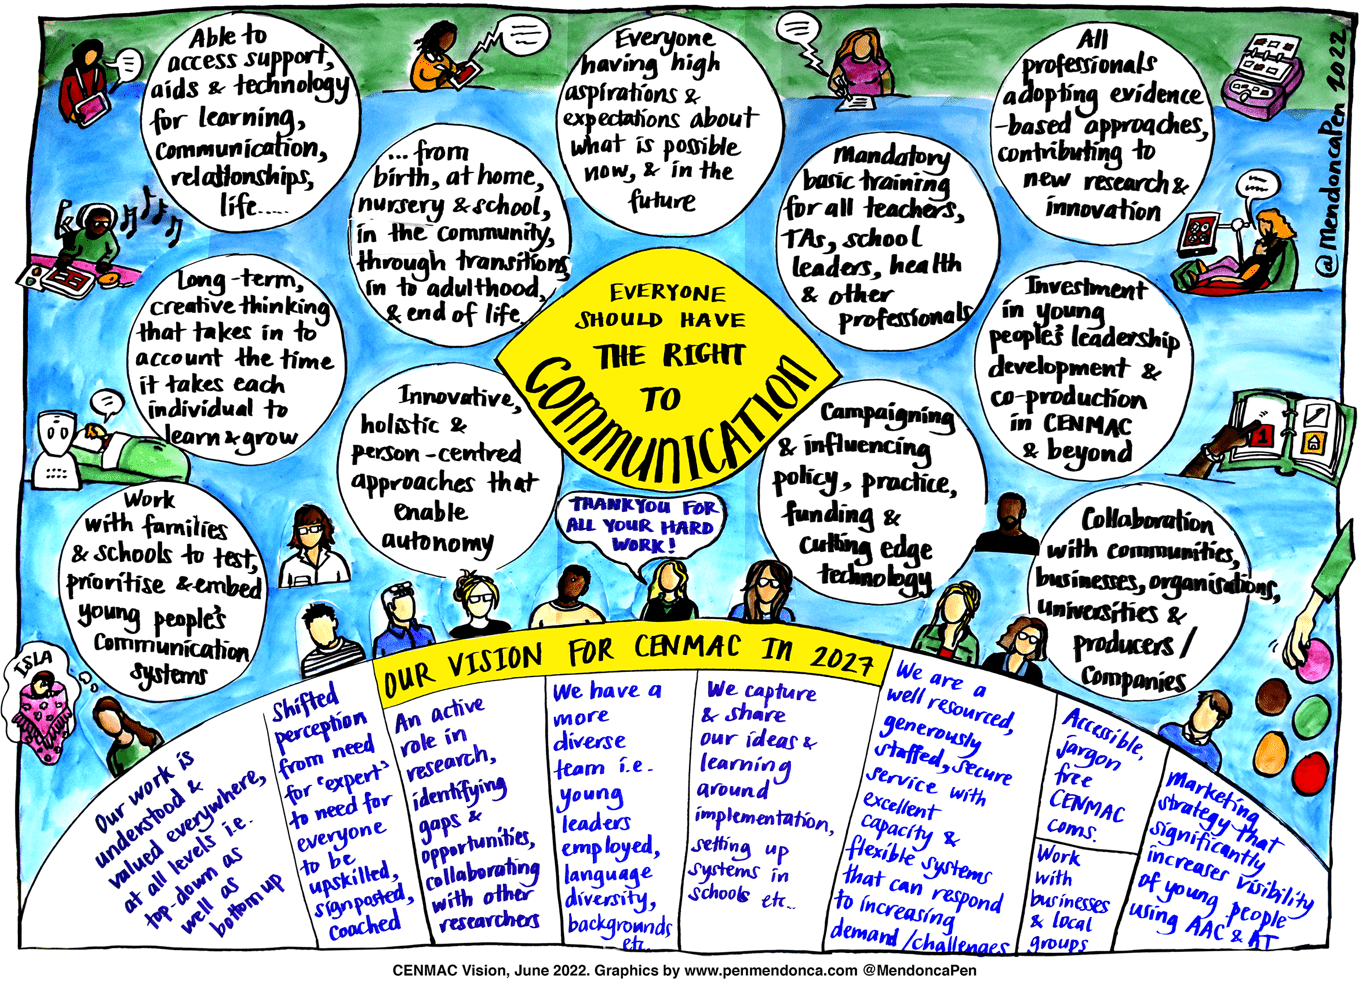 Able to
access support,
aids & technology
for learning,
communication,
relationships,
life.....
... from
birth, at home,
nursery & school,
in the community,
through transitions,
in to adulthood,
& end of life.
Everyone
having high
aspirations &
expectations about
what is possible
now, & in the
future
Mandatory
basic training
for all teachers,
TAs, school
leaders, health
& other
professionals
All
professionals
adopting evidence
-based approaches,
contributing to
new research &
innovation
@MendoncaPen 2022
Long-term,
creative thinking
that takes in to
account the time
it takes each
individual to
learn & grow
EVERYONE
SHOULD HAVE
THE RIGHT
TO
COMMUNICATION
Investment
in young
people's leadership
development &
co-production
in CENMAC
& beyond
Innovative,
holistic &
person-centred
approaches that
enable
autonomy
Campaigning
& influencing
policy, practice,
funding &
cutting edge
technology
1
Work
with families
& schools to test,
prioritise & embed
young people's
communication
systems
THANKYOU FOR
ALL YOUR HARD
WORK!
Collaboration
with communities,
businesses, organisations,
universities &
producers/
companies
ISLA
OUR VISION FOR CENMAC IN 2027
Our work is
understood &
valued everywhere,
at all levels i.e.
top-down as
well as
bottom up
Shifted
perception
from need
for 'expert'
to need for
everyone
to be
upskilled,
signposted,
coached
An active
role in
research,
identifying
gaps &
opportunities,
collaborating
with other
researchers
We have a
more
diverse
team i.e.
young
leaders
employed,
language
diversity,
backgrounds
etc.
We capture
& share
our ideas &
learning
around
implementation,
setting up
systems in
schools etc...
We are a
well resourced,
generously
staffed, secure
service with
excellent
capacity &
flexible systems
that can respond
to increasing
demand/challenges
Accessible,
jargon
free
CENMAC
coms.
Work
with
businesses
& local
groups
Marketing
strategy that
significantly
increases visibility
of young people
using AAC & AT
CENMAC Vision, June 2022. Graphics by www.penmendonca.com @MendoncaPen